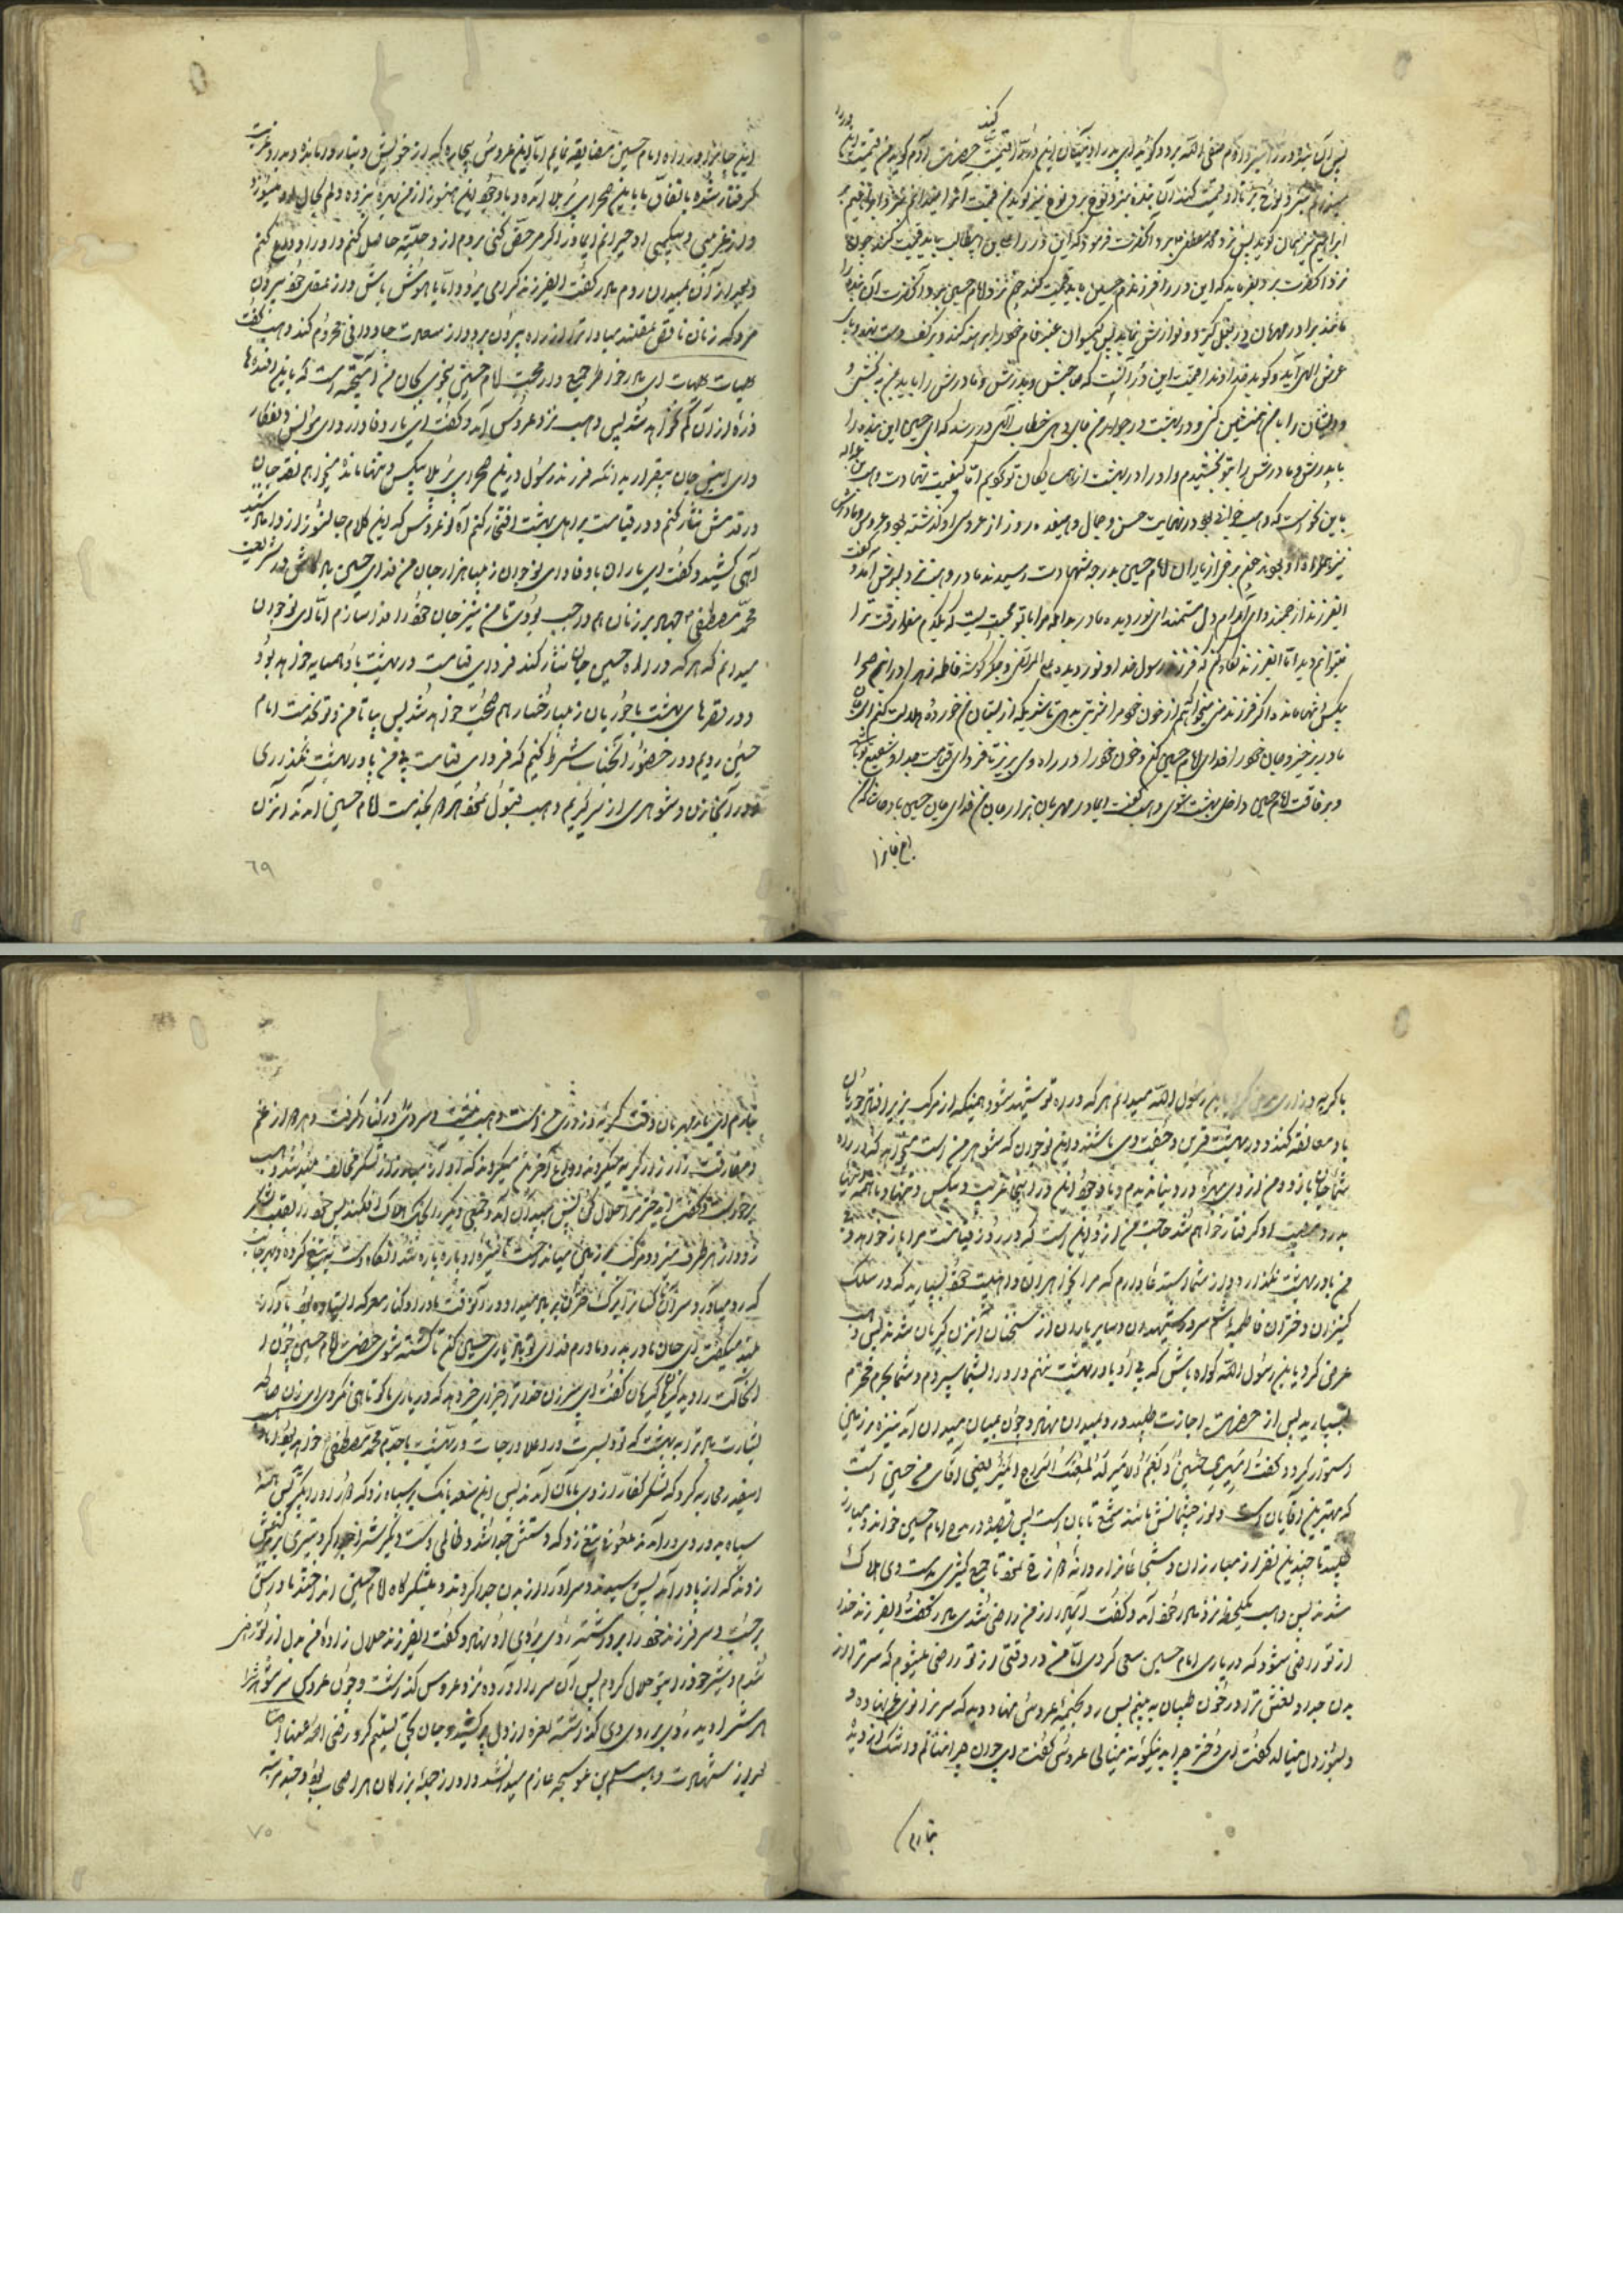 پس آن بنده در را نزد آدم صفی الله برد و گوید ای پدر آدمیان این در را قیمت کنید حضرت آدم گوید من قیمت این در را
نمیدانم نزد نوح بر تا او قیمت کند آن بنده نزد نوح برد نوح نیز گوید من قیمت آنرا نمیدانم نزد ابراهیم بر
ابراهیم نیز همان گوید پس نزد محمد مصطفی ببرد آنحضرت فرمود که این در را علی بن ابیطالب باید قیمت کند چون
نزد آنحضرت برد بفرماید که این در را فرزندم حسین باید قیمت کند چون نزد امام حسین برد آنحضرت آن بنده را
مانند برادر مهربان در بغل گیرد و نوازش نماید پس گیسوان عنبرفام خود را برهنه کند و بر کف دست نهد و بپای
عرش الهی آید و گوید خداوندا قیمت این در آنست که صاحبش و پدرش و مادرش را بیامرزی و بمن ببخشی و
و ایشان را با من همنشین کنی و در بهشت در جوار من جای دهی خطاب الهی در رسد که ای حسین این بنده را
با پدرش و مادرش را بتو بخشیدم و او را در بهشت از همسایگان تو کردیم اما کیفیت شهادت وهب بن عبدالله
باین نحو است که وهب جوانی بود در نهایت حسن و جمال و هفده روز از عروسی او گذشته بود و عروس و مادرش
نیز همراه او بودند چون برخی از یاران امام حسین بدرجه شهادت رسیدند مادر وهب نزد پسرش آمد و گفت
ایفرزند ارجمند و ای آرام دل مستمند ای نور دیده مادر بدانکه مرا با تو محبتیست که یکدم مفارقت ترا
نمیتوانم دید اما ایفرزند نگاه کن که فرزند رسول خدا و نور دیده علی المرتضی و جگر گوشه فاطمه زهرا در این صحرا
بیکس و تنها مانده اگر فرزند منی میخواهم از خون خود مرا شربتی بدهی تا شیریکه از پستان من خورده حلالت کنم ای جان
مادر برخیز و جان خود را فدای امام حسین کن و خون خود را در راه وی بریز تا فردای قیامت جد او شفیع تو باشد
و برفاقت امام حسین داخل بهشت شوی وهب گفت ایمادر مهربان هزار جان من فدای جان حسین باد حاشا که من
این جانرا
این جانرا در راه امام حسین مضایقه نمایم اما این عروس بیچاره که از خویش و تبار و امانده و بدرد غربت
گرفتار شده باتفاق ما باین صحرای کربلا آمده و با وجود این هنوز از من بهره نبرده دلم بحال او میسوزد
و از غریبی و بیکسی او حیرانم ایمادر اگر مرخص کنی بروم از او حلیت حاصل کنم و او را وداع کنم
و بعد از آن بمیدان روم مادر گفت ایفرزند گرامی برو و اما باهوش باش و از عقل خود بیرون
مرو که زنان ناقص عقلند مبادا ترا از راه بیرون برد و از سعادت جاودانی محروم کند وهب گفت
هیهات هیهات ای مادر خاطر جمع دار محبت امام حسین بنحوی بجان من آمیخته است که باین افسونها
ذره از آن کم نخواهد شد پس وهب نزد عروس آمد و گفت ای یار وفادار و ای مونس دلفکار
و ای انیس جان بیقرار بدانکه فرزند رسول در این صحرای کربلا بیکس و تنها مانده میخواهم نقد جان
در قدمش نثار کنم و در قیامت بر اهل بهشت افتخار کنم آه نوعروس که این کلام جانسوز از داماد شنید
آهی کشید و گفت ای یار باوفا و ای نوجوان زیبا هزار جان من فدای حسین باد کاش در شریعت
محمد مصطفی جهاد بر زنان هم واجب بودی تا من نیز جان خود را فدا سازم اما ای نوجوان
میدانم که هر که در راه حسین جان نثار کند فردای قیامت در بهشت با او همسایه خواهد بود
و در قصرهای بهشت با حوریان زیبا رخسار هم صحبت خواهد شد پس بیا تا من و تو بخدمت امام
حسین رویم و در حضور آنجناب شرط کنیم که فردای قیامت بی من پا در بهشت نگذاری
و در آنجا زن و شوهری از سر گیریم وهب قبول نمود هر دو بخدمت امام حسین آمدند آنزن
۶۹
با گریه و زاری عرض کرد یا ابن رسول الله میدانم هر که در راه تو شهید شود همینکه از مرکب بزیر افتد حوریان
با او معانقه کنند و در بهشت قرین و جفت وی باشند و این نوجوان که شوهر من است میخواهد که در راه
شما جان بازد و من از وی بهره در دنیا ندیدم و با وجود این در اینجا غریب و بیکس و تنها و
بدرد مصیبت او گرفتار خواهم شد حاجت من از او این است که در روز قیامت مرا باز خواهد و بی
من پا در بهشت نگذارد و از شما استدعا دارم که مرا بخواهران و اهلبیت خود بسپارید که در سلک
کنیزان دختران فاطمه باشم سرور شهیدان و سایر یاران از سخنان آنزن گریان شدند پس وهب
عرض کرد یا ابن رسول الله گواه باش که بی او پا در بهشت ننهم و او را بشما سپردم و شما بحرم محترم
بسپارید پس از حضرت اجازت طلبید و رو بمیدان نهاد و چون بمیان میدان آمد نیزه بر زمین
استوار کرد و گفت امیری حسین و نعم الامیر له لمعة کالسراج المنیر یعنی آقای من حسین است
که بهترین آقایان است و نور جبینش مانند شمع تابان است پس قصیده در مدح امام حسین خواند و مبارز
طلبید تا چندین نفر از مبارزان و شجاعان را روانه دوزخ نمود تا جمع کثیری بدست وی هلاک
شدند پس وهب یکلحظه نزد مادر خود آمد و گفت ایمادر از من راضی شدی مادر گفت ایفرزند خدا
از تو راضی شود که در یاری امام حسین سعی کردی اما من در وقتی از تو راضی میشوم که سر ترا از
بدن جدا و نعش ترا در خون طپان به بینم پس رو بخیمه عروس نهاد دید که سر بزانوی غم نهاده و
و بسوز دل مینالد گفت ای دختر چرا اینگونه مینالی عروس گفت ای جوان چرا ننالم و اشک از دیده
نبارم
نبارم ای یار مهربان وقت گریه و زاری من است وهب نشست و سر وی در کنار گرفت و هر دو از غم
و مفارقت زار زار گریه میکردند و وداع آخرین میکردند که آواز مبارز از لشکر مخالف بلند شد وهب
برجست و گفت ایدختر مرا حلال کن پس بمیدان آمد و جمعی دیگر را بخاک هلاک افکند پس خود را بقلب لشکر
زد و از هر طرف مرد و مرکب بر زمین میانداخت تا نیزه او پاره پاره شد آنگاه دست به تیغ کرده و بهر جانب
که رو میآورد سران را بسان برگ خزان بر باد میداد و در آنوقت مادر او در کنار معرکه ایستاده بود و باواز
بلند میگفت ای جان مادر پدر و مادرم فدای تو باد یاری حسین کن تا کشته شوی حضرت امام حسین چون
آنحالت را دید گریان گریان گفت ای پیرزن خدا ترا جزای خیر دهد که در یاری ما کوتاهی نکردی ای زن صالحه
بشارت باد ترا به بهشت که تو و پسرت در اعلا درجات در بهشت با جدم محمد مصطفی خواهید بود اما وهب
اینقدر محاربه کرد که لشکر کفار از وی بامان آمدند پس ابن سعد بانک بر سپاه زد که او را در میان گیرید پس همه
سپاه بدور وی درآمدند ملعونی تیغ زد که دستش جدا شد و ظالمی دست دیگرش را جدا کرد و تیری بر
زدند که از پا درآمد پس رسیدند و سر او را از بدن جدا کردند و بلشکر گاه امام حسین انداختند مادرش
برجست و سر فرزند خود را برداشته روی بر روی او نهاد و گفت ایفرزند حلال زاده من بدل از تو راضی
شدم و شیر خود را بتو حلال کردم پس آن سر را آورده نزد عروس گذاشت و چون عروس سر شوهر را
دید روی بر روی وی گذاشته نعره از دل بر کشید و جان بحق تسلیم کرد رضی الله عنها اما
بعد از شهادت وهب مسلم بن عوسجه عازم میدان شد و او از جمله بزرگان اصحاب بود و چند مرتبه
۷۰